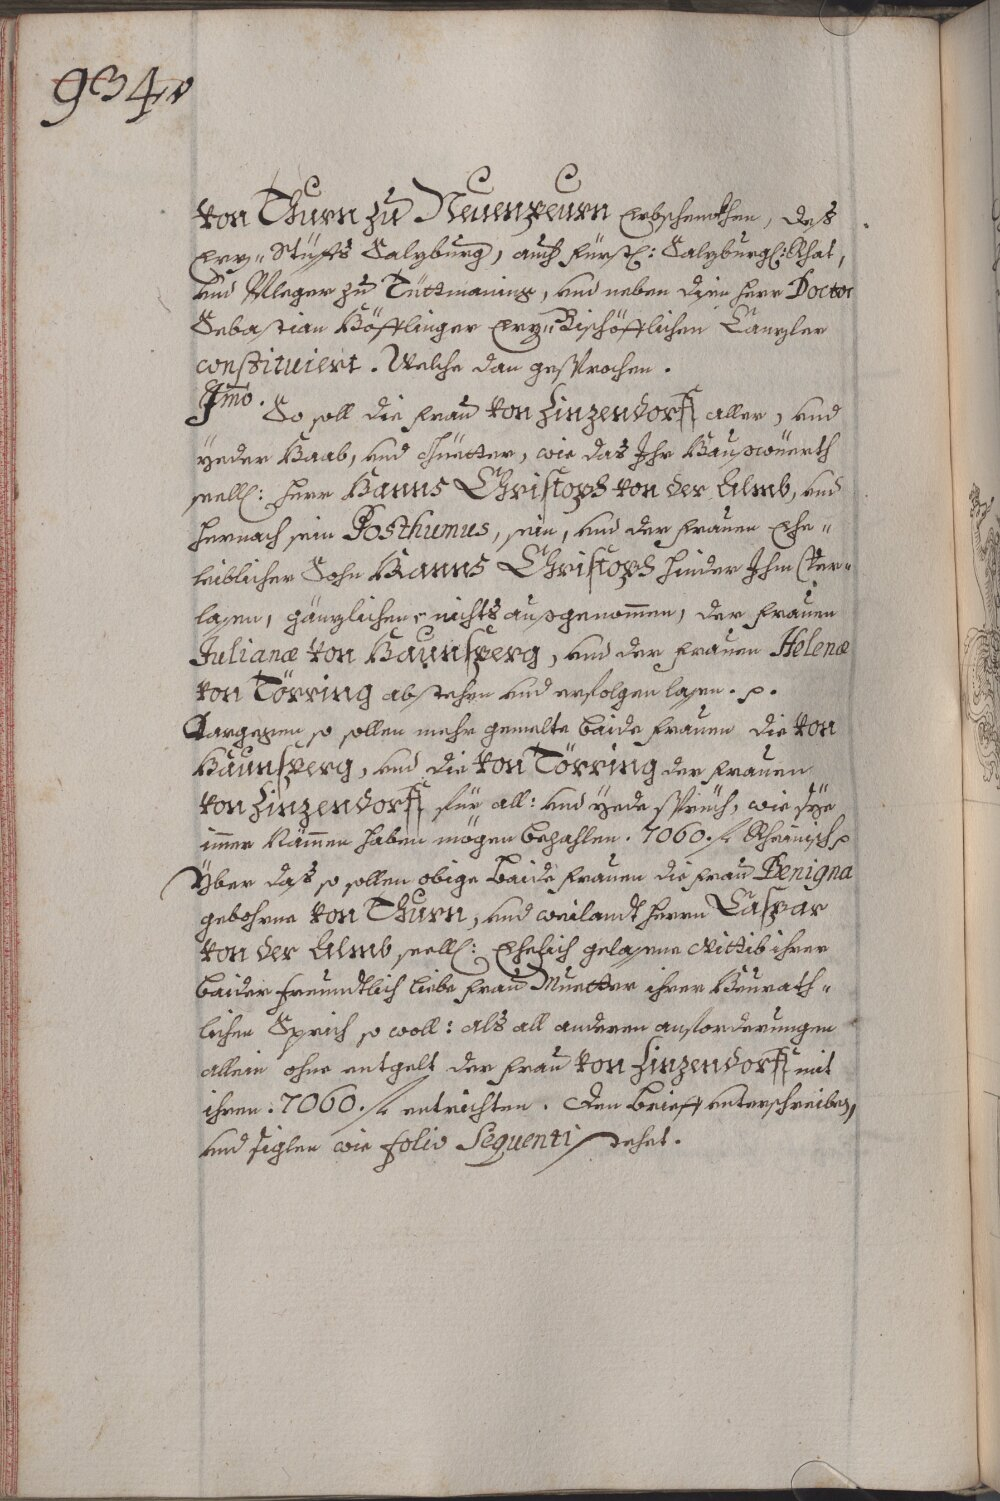 934.
von Thurn zu Neuenpeurn Erbschenckhen, des
Erz= Stüffts Salzburg, auch Fürstl: Salzburgl: Rhat,
und Pfleger zu Tüttmaning, und neben Ihm Herr Doctor
Sebastian Höfflinger Erz=Bischöfflichen Canzler
constituiert. Welche dan gesprochen.
Imo. So soll die Frau von Linzendorff aller, und
yeder Haab, und Güetter, wie das Ihr Hauswüerth
seell: Herr Hanns Christoph von der Almb, und
hernach sein Posthumus, sein, und der Frauen Ehe=
leiblicher Sohn Hanns Christoph hinder Ihm ver=
lassen, gänzlichen nichts außgenommen, der Frauen
Julianæ von Haunsperg, und der Frauen Helenæ
von Törring abstehen und erfolgen lassen. p.
Dargegen so sollen mehr gemelte baide Frauen die von
Haunsperg, und die von Törring der Frauen
von Linzendorff für all: und yede sprüch, wie sye
immer Nammen haben mögen bezahlen. 7060. fl Rheinisch p
Yber das so sollen obige baide Frauen die Frau Benigna
gebohrne von Thurn, und weilandt Herrn Caspar
von der Almb seell: Ehelich gelassene Wittib ihrer
baider freundtlich liebe Frau Muetter ihrer Heurath=
lichen Sprüch so woll: als all anderen anforderungen
allein ohne entgelt der Frau von Linzendorff mit
ihren. 7060. fl entrichten. Den brieff unterschreiben,
und siglen wie folio Sequenti stehet.